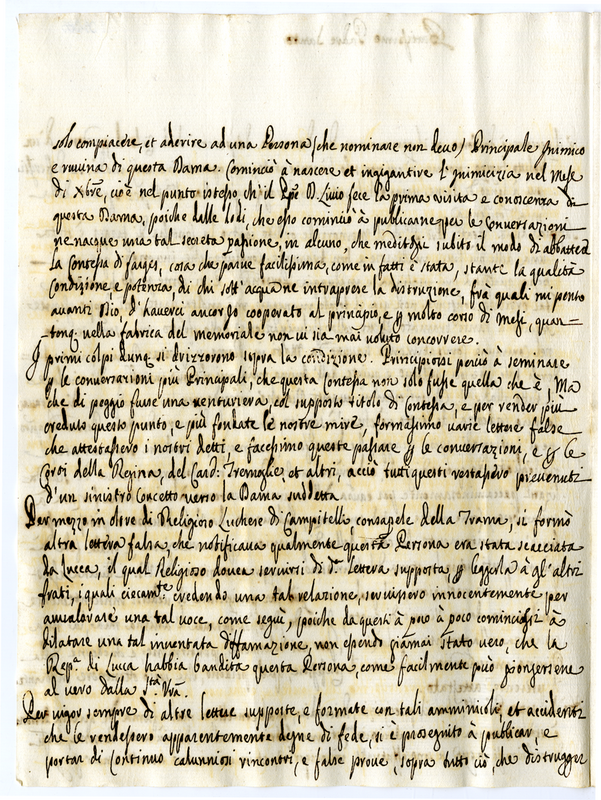 solo compiacere, et aderire ad una Persona (che nominare non devo) Principale inimico
e ruvina di questa Dama. Cominciò à nascere et ingigantire l'inimicizia nel Mese
di Xbre, cioè nel punto istesso, ch'il D. Livio fece la prima visita e conoscenza di
questa Dama, poiche dalle lodi, che esso cominciò à publicarne per le Conversazioni
ne nacque una tal secreta passione, in alcuno, che meditossi subito il modo di abbatter
la Contessa di cosa che parve facilissima, come in fatti è stata, stante la qualità
Condizione e potenza, di chi sott'acqua ne intraprese la distruzione, frà quali mi pento
avanti Dio, d'haverci ancor io cooperato al principio, e p molto corso di Mesi, quan-
tonq nella fabrica del memoriale non vi sia mai voluto concorrere.
I primi colpi dunq si drizzorono sopra la condizione. Principiossi perciò à seminare
p le conversazioni più Principali, che questa Contessa non solo fusse quella che è, Ma
che di peggio fusse una venturiera, col supposto titolo di Contessa, e per render più
creduto questo punto, e più fondate le nostre mire, formassimo varie lettere false
che attestassero i nostri detti, e facessimo queste passare p le conversazioni, e p le
Corti della Regina, del Card: Tremoglie, et altri, acciò tutti questi restassero prevenuti
d'un sinistro Concetto verso la Dama suddetta
Per mezzo in oltre di Religioso Luchese di Campitelli, consapele della Trama, si formò
altra lettera falsa, che notificava qualmente questa Persona era stata scacciata
da Lucca, il qual Religioso dovea servirsi di da. lettera supposta, p leggerla à gl'altri
frati, i quali ciecamte. credendo una tal relazione, servissero innocentemente per
avvalorare una tal voce, come seguì, poiche da questi à poco à poco cominciossi à
dilatare una tal inventata diffamazione, non essendo giamai stato vero, che la
Repa. di Lucca habbia bandita questa Persona, come facilmente può giongersene
al vero dalla Sta. Vra.
Per vigor sempre di altre lettere supposte, e formate con tali amminicoli, et accidenti
che le rendessero apparentemente degne di fede, si è proseguito à publicar, e
portar di Continuo calunniosi rincontri, e false prove, sopra tutto ciò, che distrugger